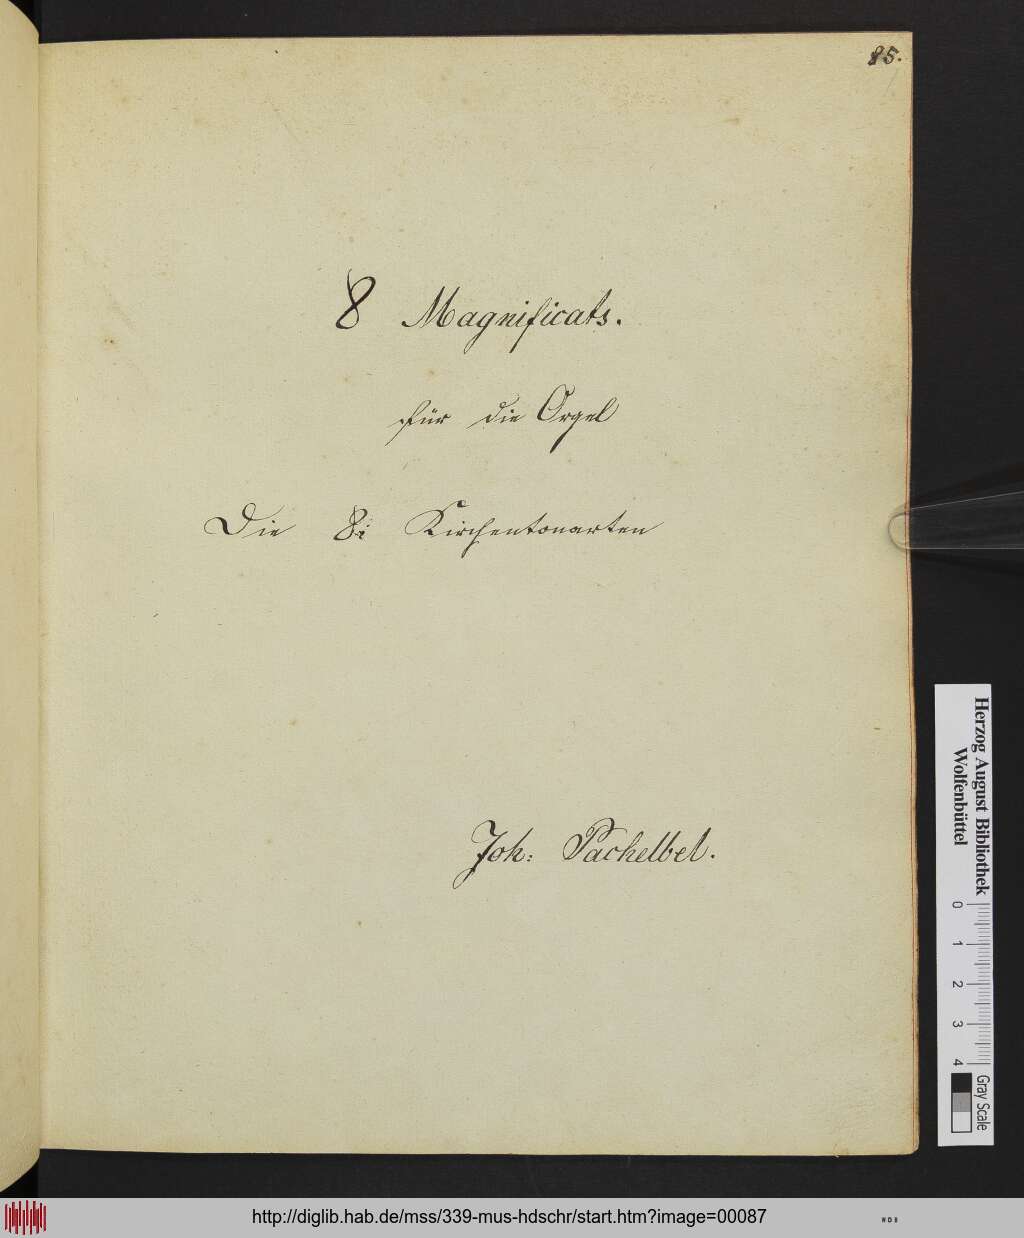 85.
8 Magnificats.
für die Orgel
Die 8: Kirchentonarten
Joh: Pachelbel.
Herzog August Bibliothek
Wolfenbüttel
0 1 2 3 4
Gray Scale
http://diglib.hab.de/mss/339-mus-hdschr/start.htm?image=00087